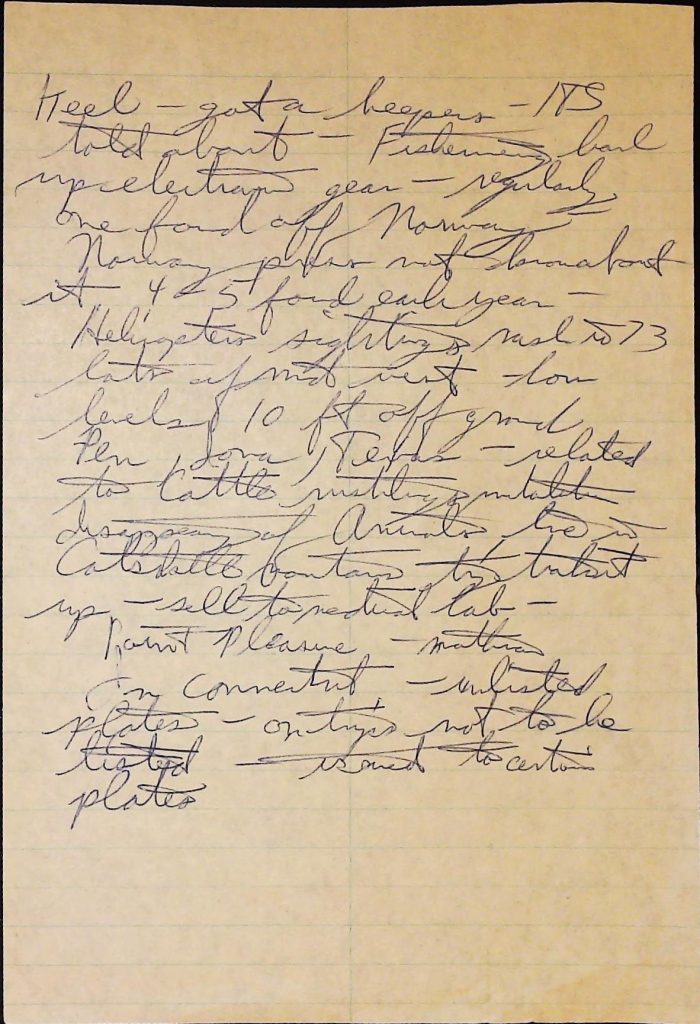 Keel - got a beepers - ITS
told about - Fishermen, haul
up electronic gear - regularly
one found off Norway -
Norway press not known about
it 4 - 5 found each year -
Helicopters sightings, rash in 73
lots of mid west - low
levels, 10 ft off ground
Pen, Iowa, Texas - related
to Cattle rustling, mutilation
disappearing of Animals, live in
Catskill Mountains, try to
up - sell to medical lab -
Point Pleasure - mothman
In Connecticut - unlisted
plates - on trips not to be
listed - issued to certain
plates